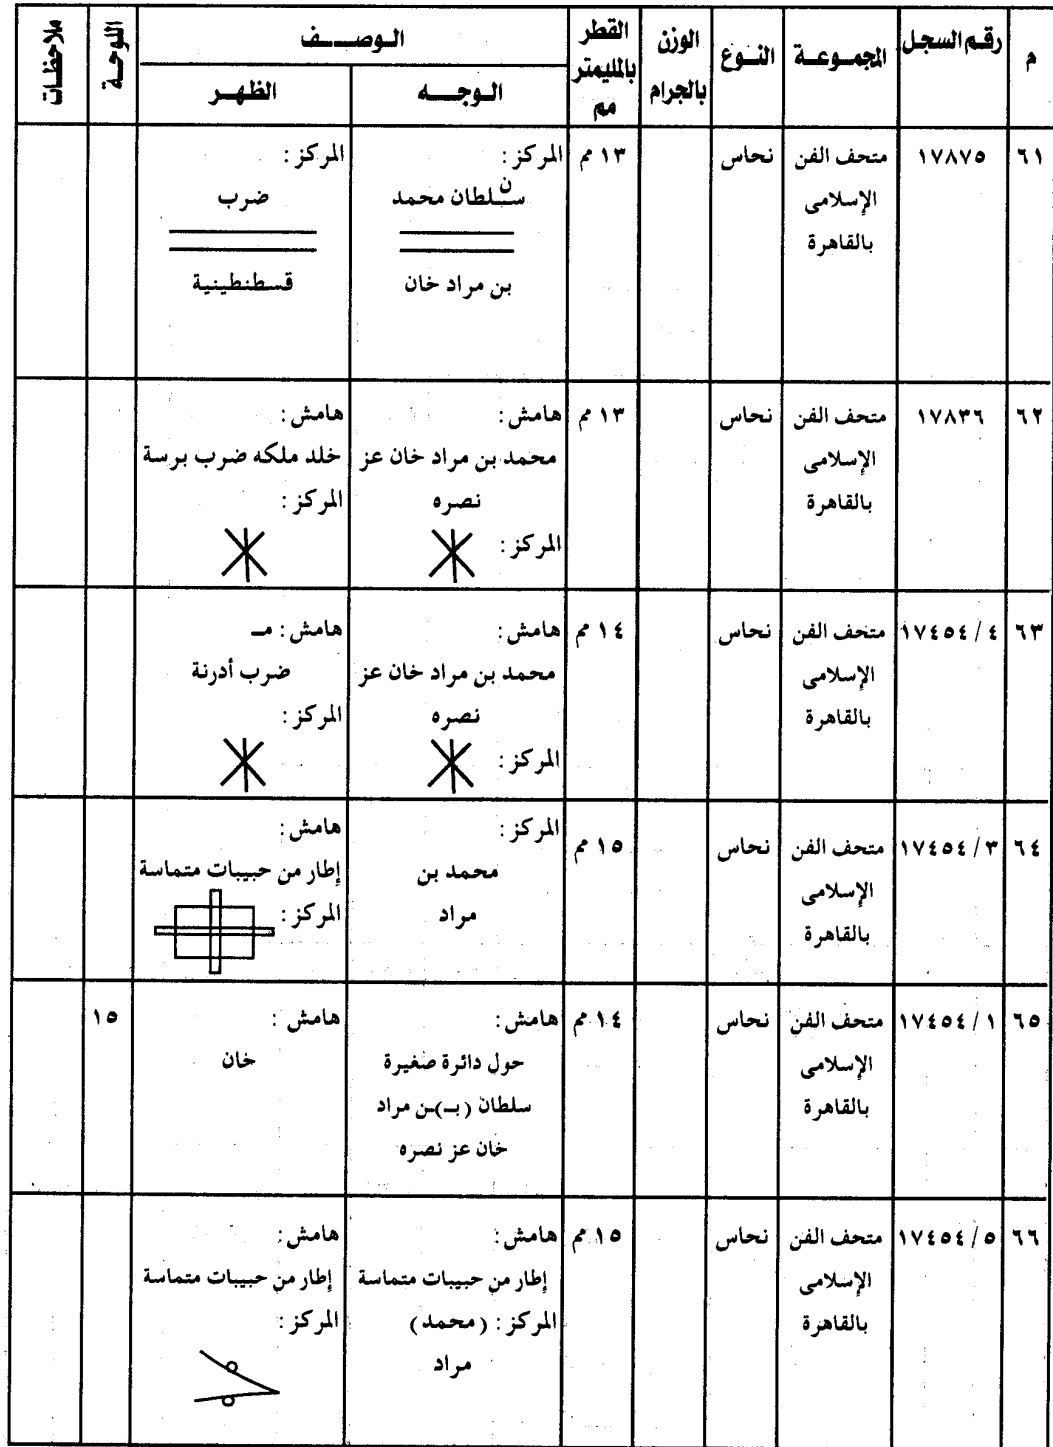 م
رقم السجل
المجموعة
النوع
الوزن بالجرام
القطر بالمليمتر مم
الوصف
الوجه
الظهر
اللوحة
ملاحظات
٦١
١٧٨٧٥
متحف الفن
الإسلامى
بالقاهرة
نحاس
١٣ مم
المركز :
سلطان محمد
ن
بن مراد خان
المركز :
ضرب
قسطنطينية
٦٢
١٧٨٣٦
متحف الفن
الإسلامى
بالقاهرة
نحاس
١٣ مم
هامش :
محمد بن مراد خان عز
نصره
المركز :
هامش :
خلد ملكه ضرب برسة
المركز :
٦٣
١٧٤٥٤/٤
متحف الفن
الإسلامى
بالقاهرة
نحاس
١٤ مم
هامش :
محمد بن مراد خان عز
نصره
المركز :
هامش : مـ
ضرب أدرنة
المركز :
٦٤
١٧٤٥٤/٣
متحف الفن
الإسلامى
بالقاهرة
نحاس
١٥ مم
المركز :
محمد بن
مراد
هامش :
إطار من حبيبات متماسة
المركز :
٦٥
١٧٤٥٤/١
متحف الفن
الإسلامى
بالقاهرة
نحاس
١٤ مم
هامش :
حول دائرة صغيرة
سلطان (بـ)ـن مراد
خان عز نصره
هامش :
خان
١٥
٦٦
١٧٤٥٤/٥
متحف الفن
الإسلامى
بالقاهرة
نحاس
١٥ مم
هامش :
إطار من حبيبات متماسة
المركز : (محمد)
مراد
هامش :
إطار من حبيبات متماسة
المركز :